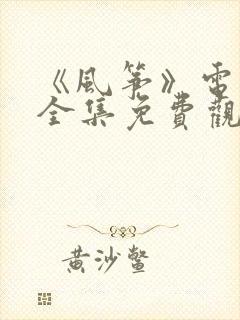 《風箏》電
全集免費觀
黃沙鱉